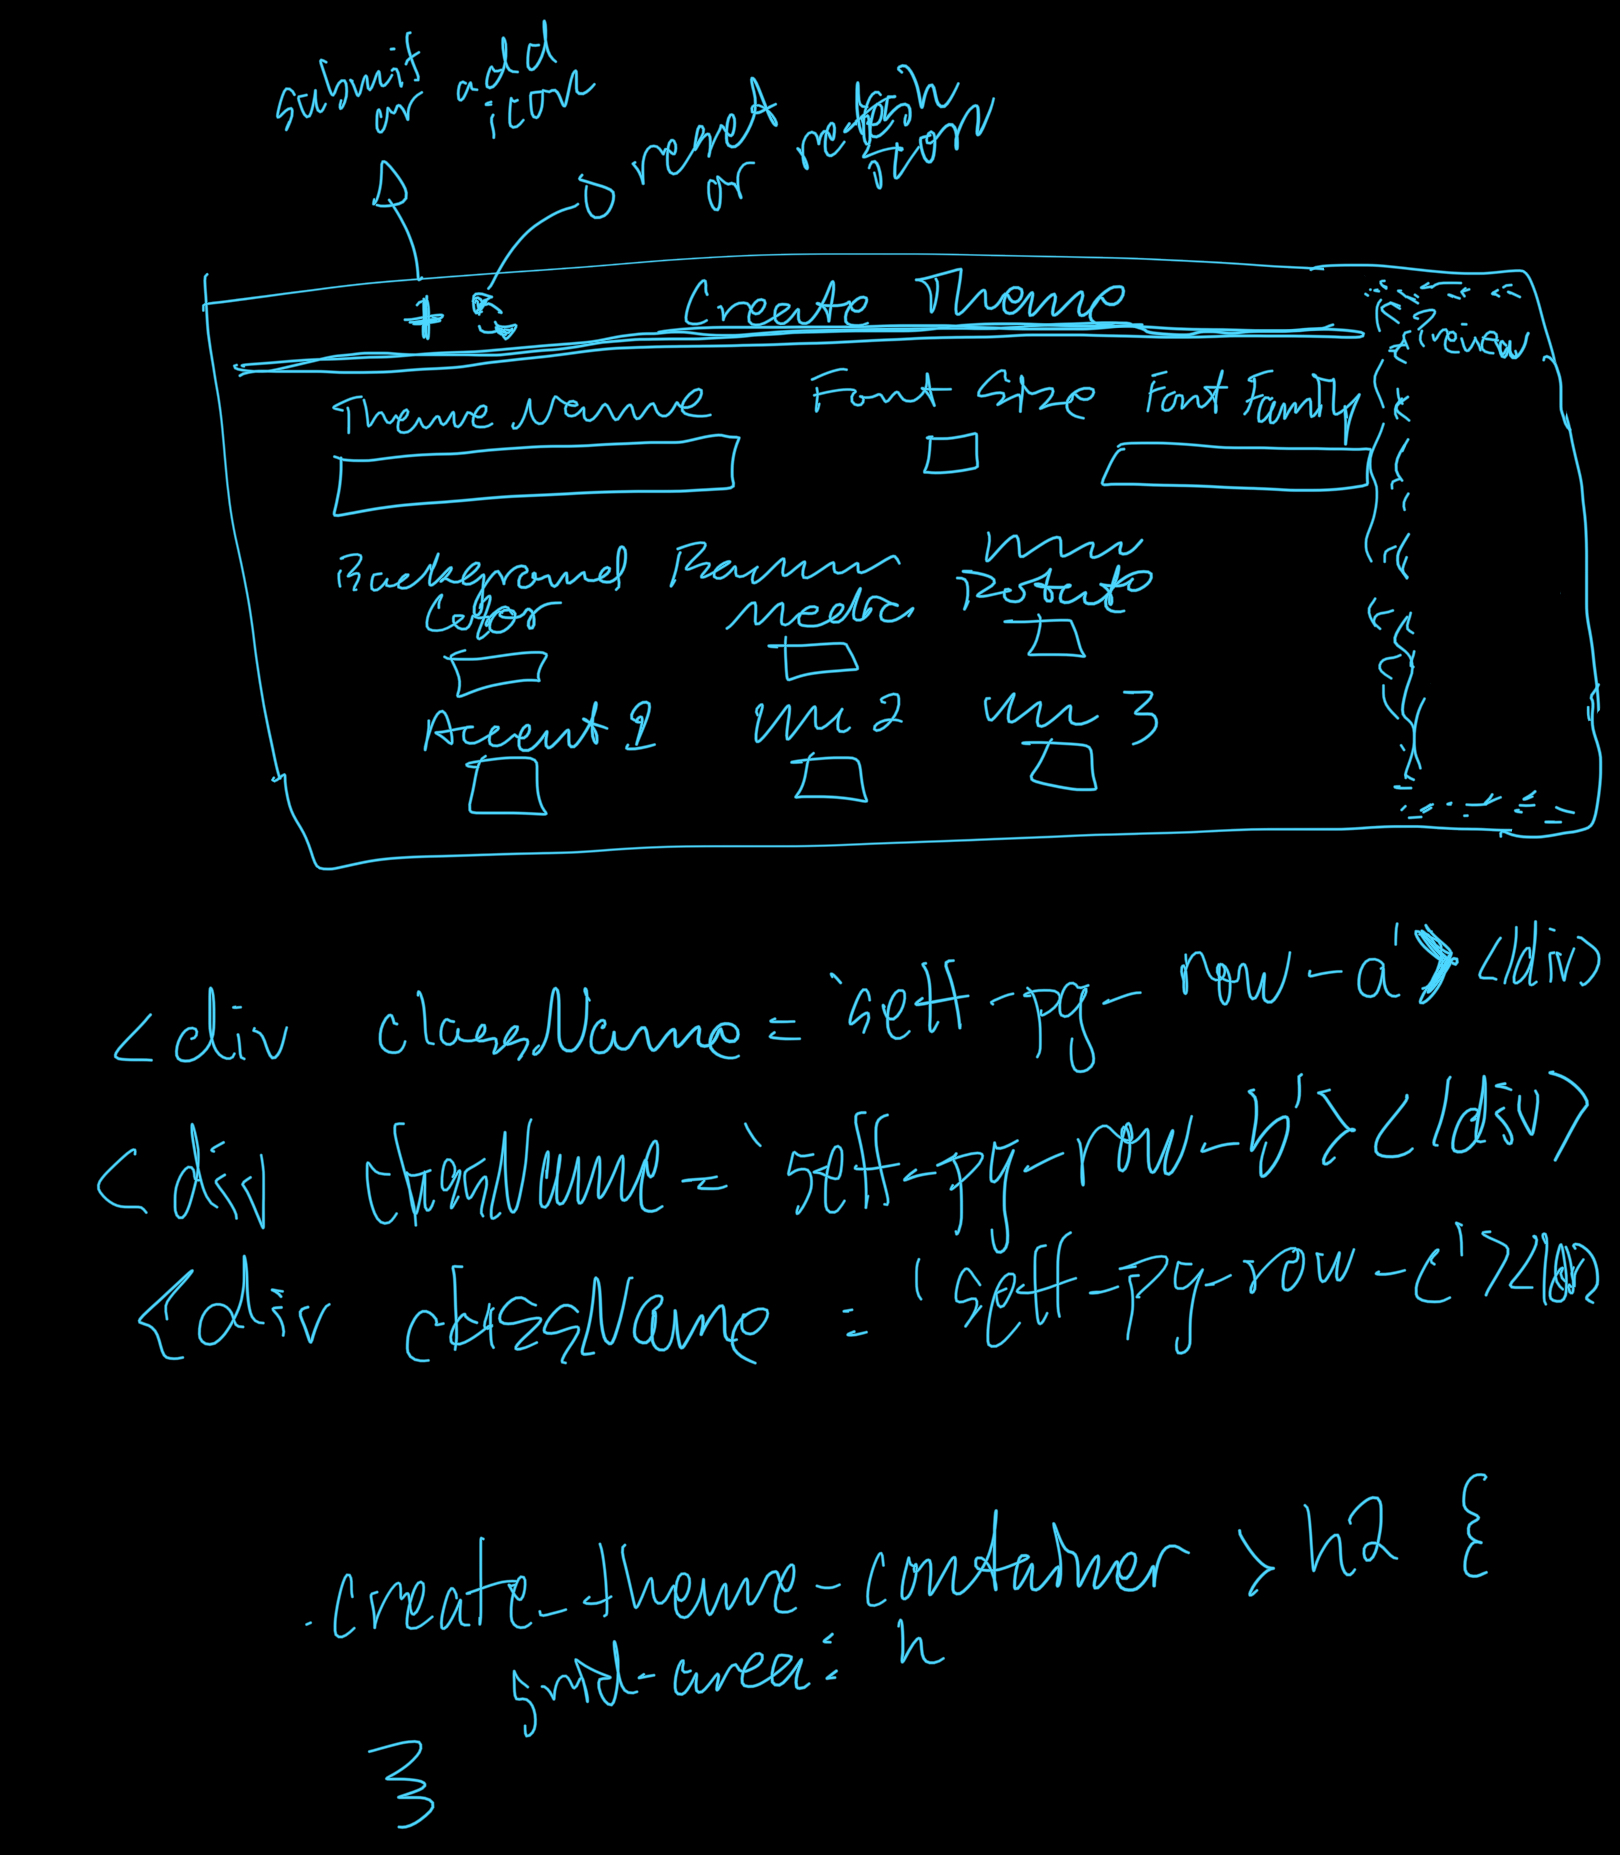 submit or add icon
reset or refresh icon
+ Create Theme
Preview
Theme Name Font Size Font Family
Background Color
Media
Accent 1 2 3
<div className = 'sett-pg-row-a'></div>
<div className = 'sett-pg-row-b'></div>
<div className = 'sett-pg-row-c'></div>
.create-theme-container > h2 {
grid-area: h
}